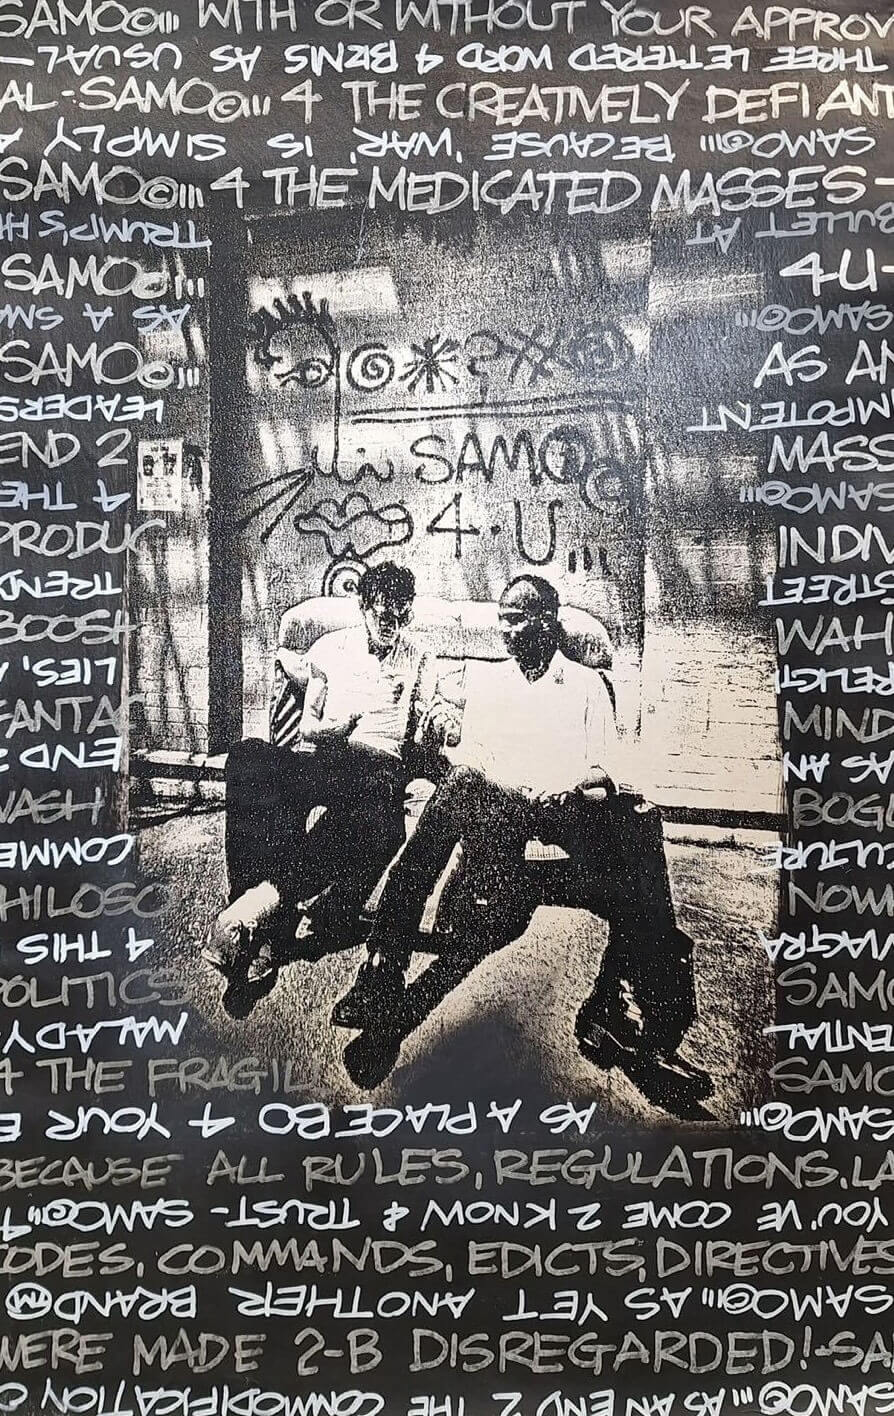 SAMO©ııı WITH OR WITHOUT YOUR APPROV
THREE LETTERED WORD 4 BIZNIS AS USUAL—
AL-SAMO©ııı 4 THE CREATIVELY DEFIANT
SAMO©ııı BECAUSE 'WAR,' IS SIMPLY A
SAMO©ııı 4 THE MEDICATED MASSES-
BULLET AT TRUMP'S H
SAMO©ııı 4U-
SAMO©ııı AS A SMA
SAMO©ııı AS AN
MPOTENT LEADERS
END 2 MASS
SAMO©ııı 4 THE
PRODUC INDIV
STREET TREND
BOOSH WAH
RELIGI LIES, A
FANTAC MIND
AS AN END 2
WASH BOG
CULTURE COMME
HILOSO NOWA
VIAGRA 4 THIS
POLITICS SAMO
ENTIAL MALADY-
4 THE FRAGIL SAMO
SAMO©ııı AS A PLACEBO 4 YOUR E
BECAUSE ALL RULES, REGULATIONS, LA
YOU'VE COME 2 KNOW & TRUST-SAMO©ııı 4
ODES, COMMANDS, EDICTS, DIRECTIVES
SAMO©ııı AS YET ANOTHER BRAND™
WERE MADE 2-B DISREGARDED!-SA
SAMO©ııı AS AN END 2 THE COMMODIFICATION O
SAMO©
4·U...